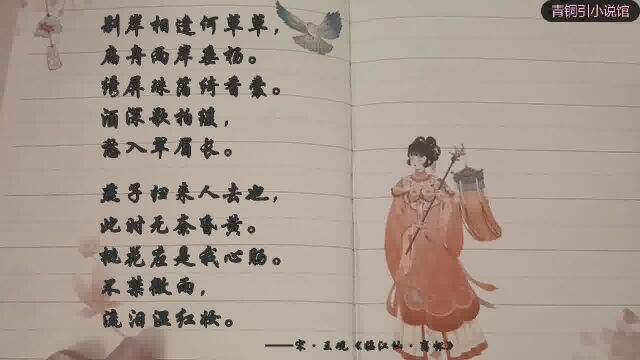 青铜引小说馆
别岸相逢何草草，
扁舟两岸垂杨。
绣屏珠箔绮香囊。
酒深歌拍缓，
愁入翠眉长。
燕子归来人去也，
此时无奈昏黄。
桃花应是我心肠。
不禁微雨，
流泪湿红妆。
——宋·王观《临江仙·离怀》